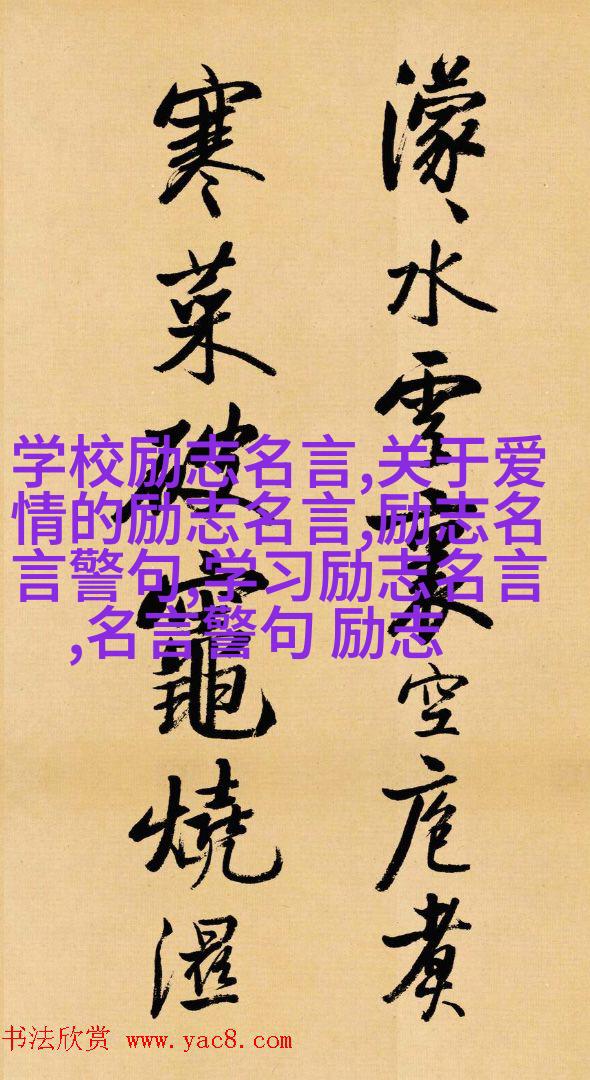 濛〻水雲裏空庖煮
寒菜破竈燒濕
学校励志名言,关于爱
情的励志名言,励志名
言警句,学习励志名言
,名言警句 励志
书法欣赏 www.yac8.com